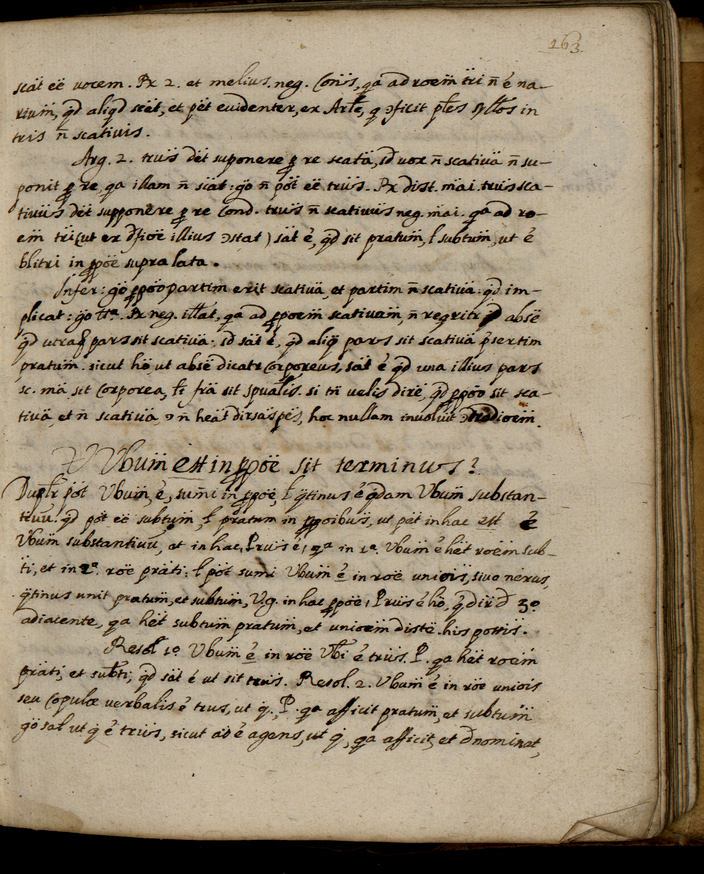 163
scat eë vocem. Pr 2. et melius. neg. Coñs, qa ad roem tri ñ é na-
rium, qd aliqd scet, et pët evidenter, ex Arle, q ɔficit ples syllos in
tris ñ scativis.
Arg. 2. truïs dët suponere p re scata, sd vox ñ scativa ñ su-
ponit p re, qa illam ñ scat: go ñ pöt eë truïs. Pr dist. mai. truïs sca-
tiuüs dët supponere p re Cond. truïs ñ scativus neg. mai. qa ad ro-
em tri (ut ex dfioe illius ɔstat) sat é, qd sit pratum, l subtum, ut é
blitri in ppöe supra lata.
Infer: go ppöo partim erit scativa, et partim ñ scativa: qd im-
plicat: go Pr. neg. illat, qa ad ppoem scativam, ñ regritr absë
qd utraq pars sit scativa. sd sat é, qd aliq pars sit scativa psertim
pratum. sicut hö ut absë dicatr Corporeus, sat é qd una illius pars
sc. mä sit Corporea, lt frä sit spualis. si tñ velis dire, qd ppöo sit sca-
tiva, et ñ scativa, ñ heät dirsas pës, hoc nullam involuit
Vbum est in ppöe sit terminus?
Duplr pöt Vbum, é, sumi in ppöe, l qtinus é qdam Vbum substan-
tivu. qd pöt eë subtum l pratum in ppoibus, ut pät in hac est é
Vbum substantivu, at in hac, Pruïs é; qa in 1a. Vbum é hët roem sub-
ti, et in 2a. röe präti; l pöt sumi Vbum é in röe unioïs, sive nexus,
qtinus unit pratum, et subtum, Vg. in hac ppöe, Pruïs é hö, q dir d 3o
adiacente, qa hët subtum pratum, et unioem distë his pottis.
Resol 1o. Vbum é in röe Vbi é truïs. P. qa hët roem
präti, et subti, qd sat é ut sit truïs. Resol. 2. Vbum é in röe unioïs
seu Copulæ verbalis é truïs, ut q. P. qa afficit pratum, et subtum
go sal ut q é truïs, sicut é agens, ut q, qa afficit, et dnominat,